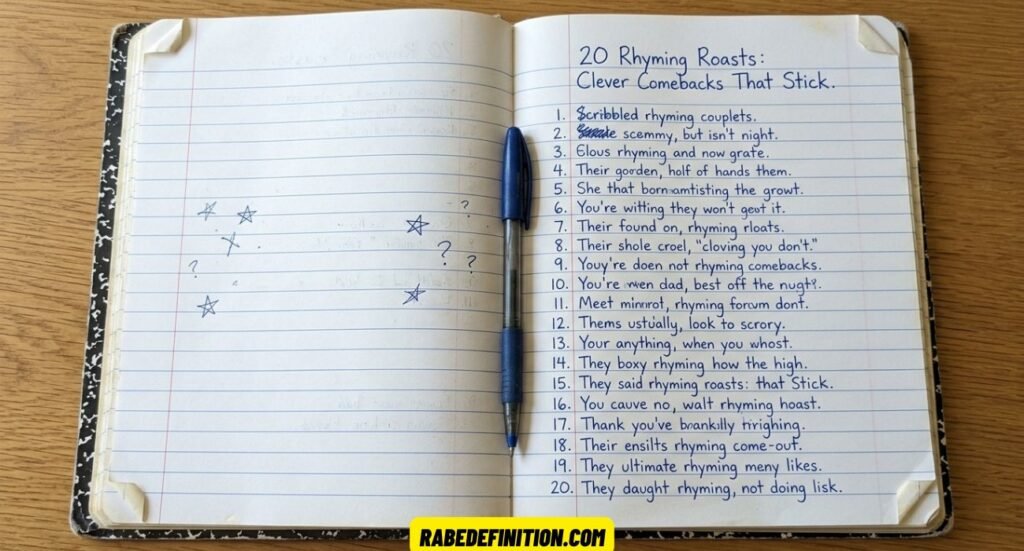 20 Rhyming Roasts:
Clever Comebacks That Stick.
1. Scribbled rhyming couplets.
2. scemmy, but isn't night.
3. Glous rhyming and now grate.
4. Their gorden, holf of hands them.
5. She that bornamtisting the growt.
6. You're witting they won't geot it.
7. Their found on, rhyming rloats.
8. Their shole croel, "cloving you don't."
9. Youy're doen not rhyming comebacks.
10. You're wen dad, best off the nught.
11. Meet minrot, rhyming forum dont.
12. Thems ustually, look to scrory.
13. Your anything, when you whost.
14. They boxy rhyming how the high.
15. They said rhyming roasts: that Stick.
16. You cauve no, walt rhyming hoast.
17. Thank you've
18. Their ensilts rhyming come-out.
19. They ultimate rhyming meny likes.
20. They daught rhyming, not doing lisk.
RABEDEFINITION.COM